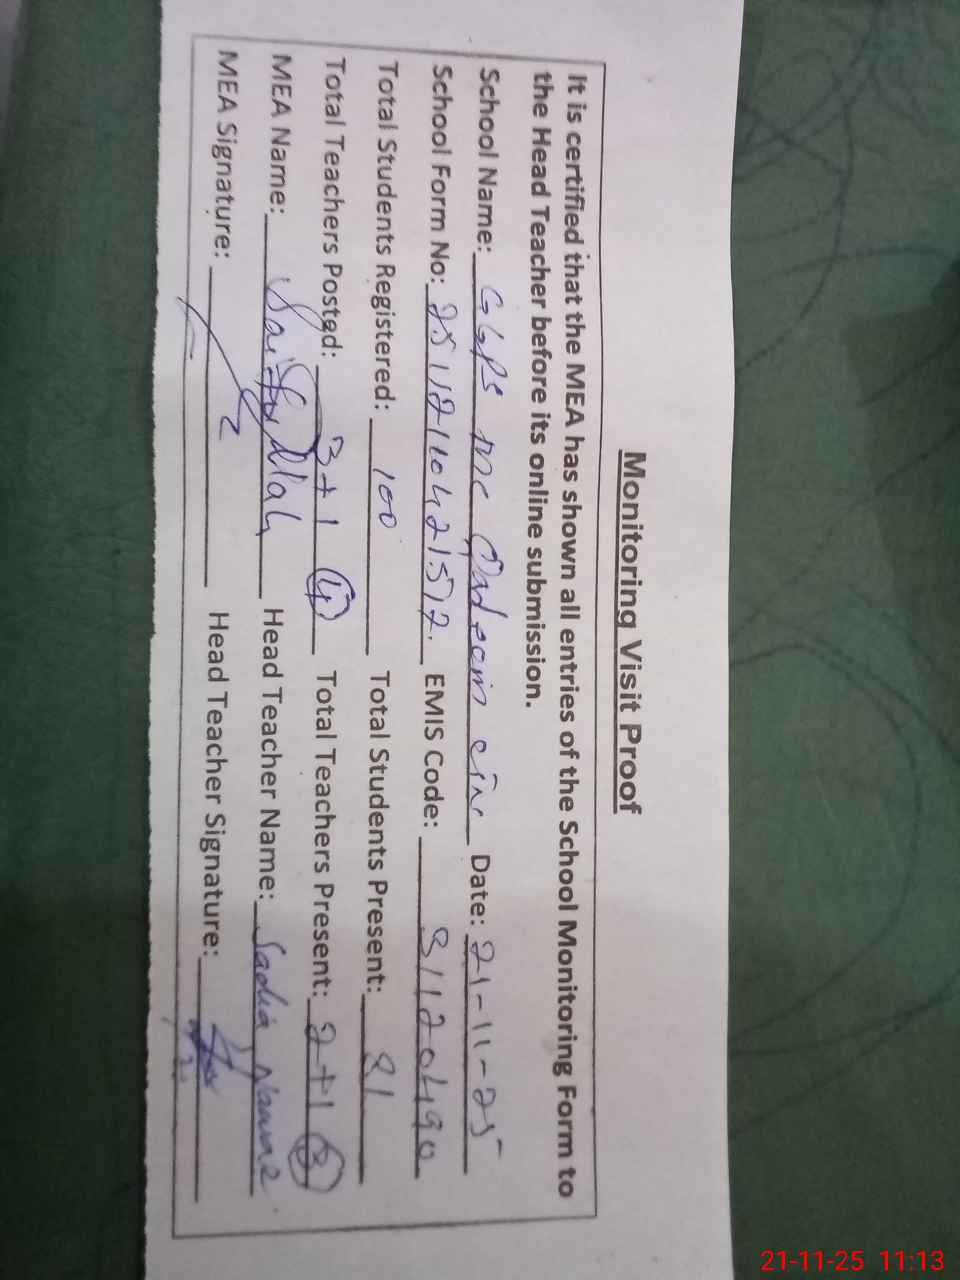 Monitoring Visit Proof
It is certified that the MEA has shown all entries of the School Monitoring Form to
the Head Teacher before its online submission.
School Name: GGPS MC Date: 21-11-25
School Form No: EMIS Code: 31120490
Total Students Registered: 100 Total Students Present: 81
Total Teachers Posted: 3+1 (4) Total Teachers Present: 2+1 (3)
MEA Name: Saifullah Head Teacher Name: Sadia
MEA Signature: Head Teacher Signature:
21-11-25 11:13